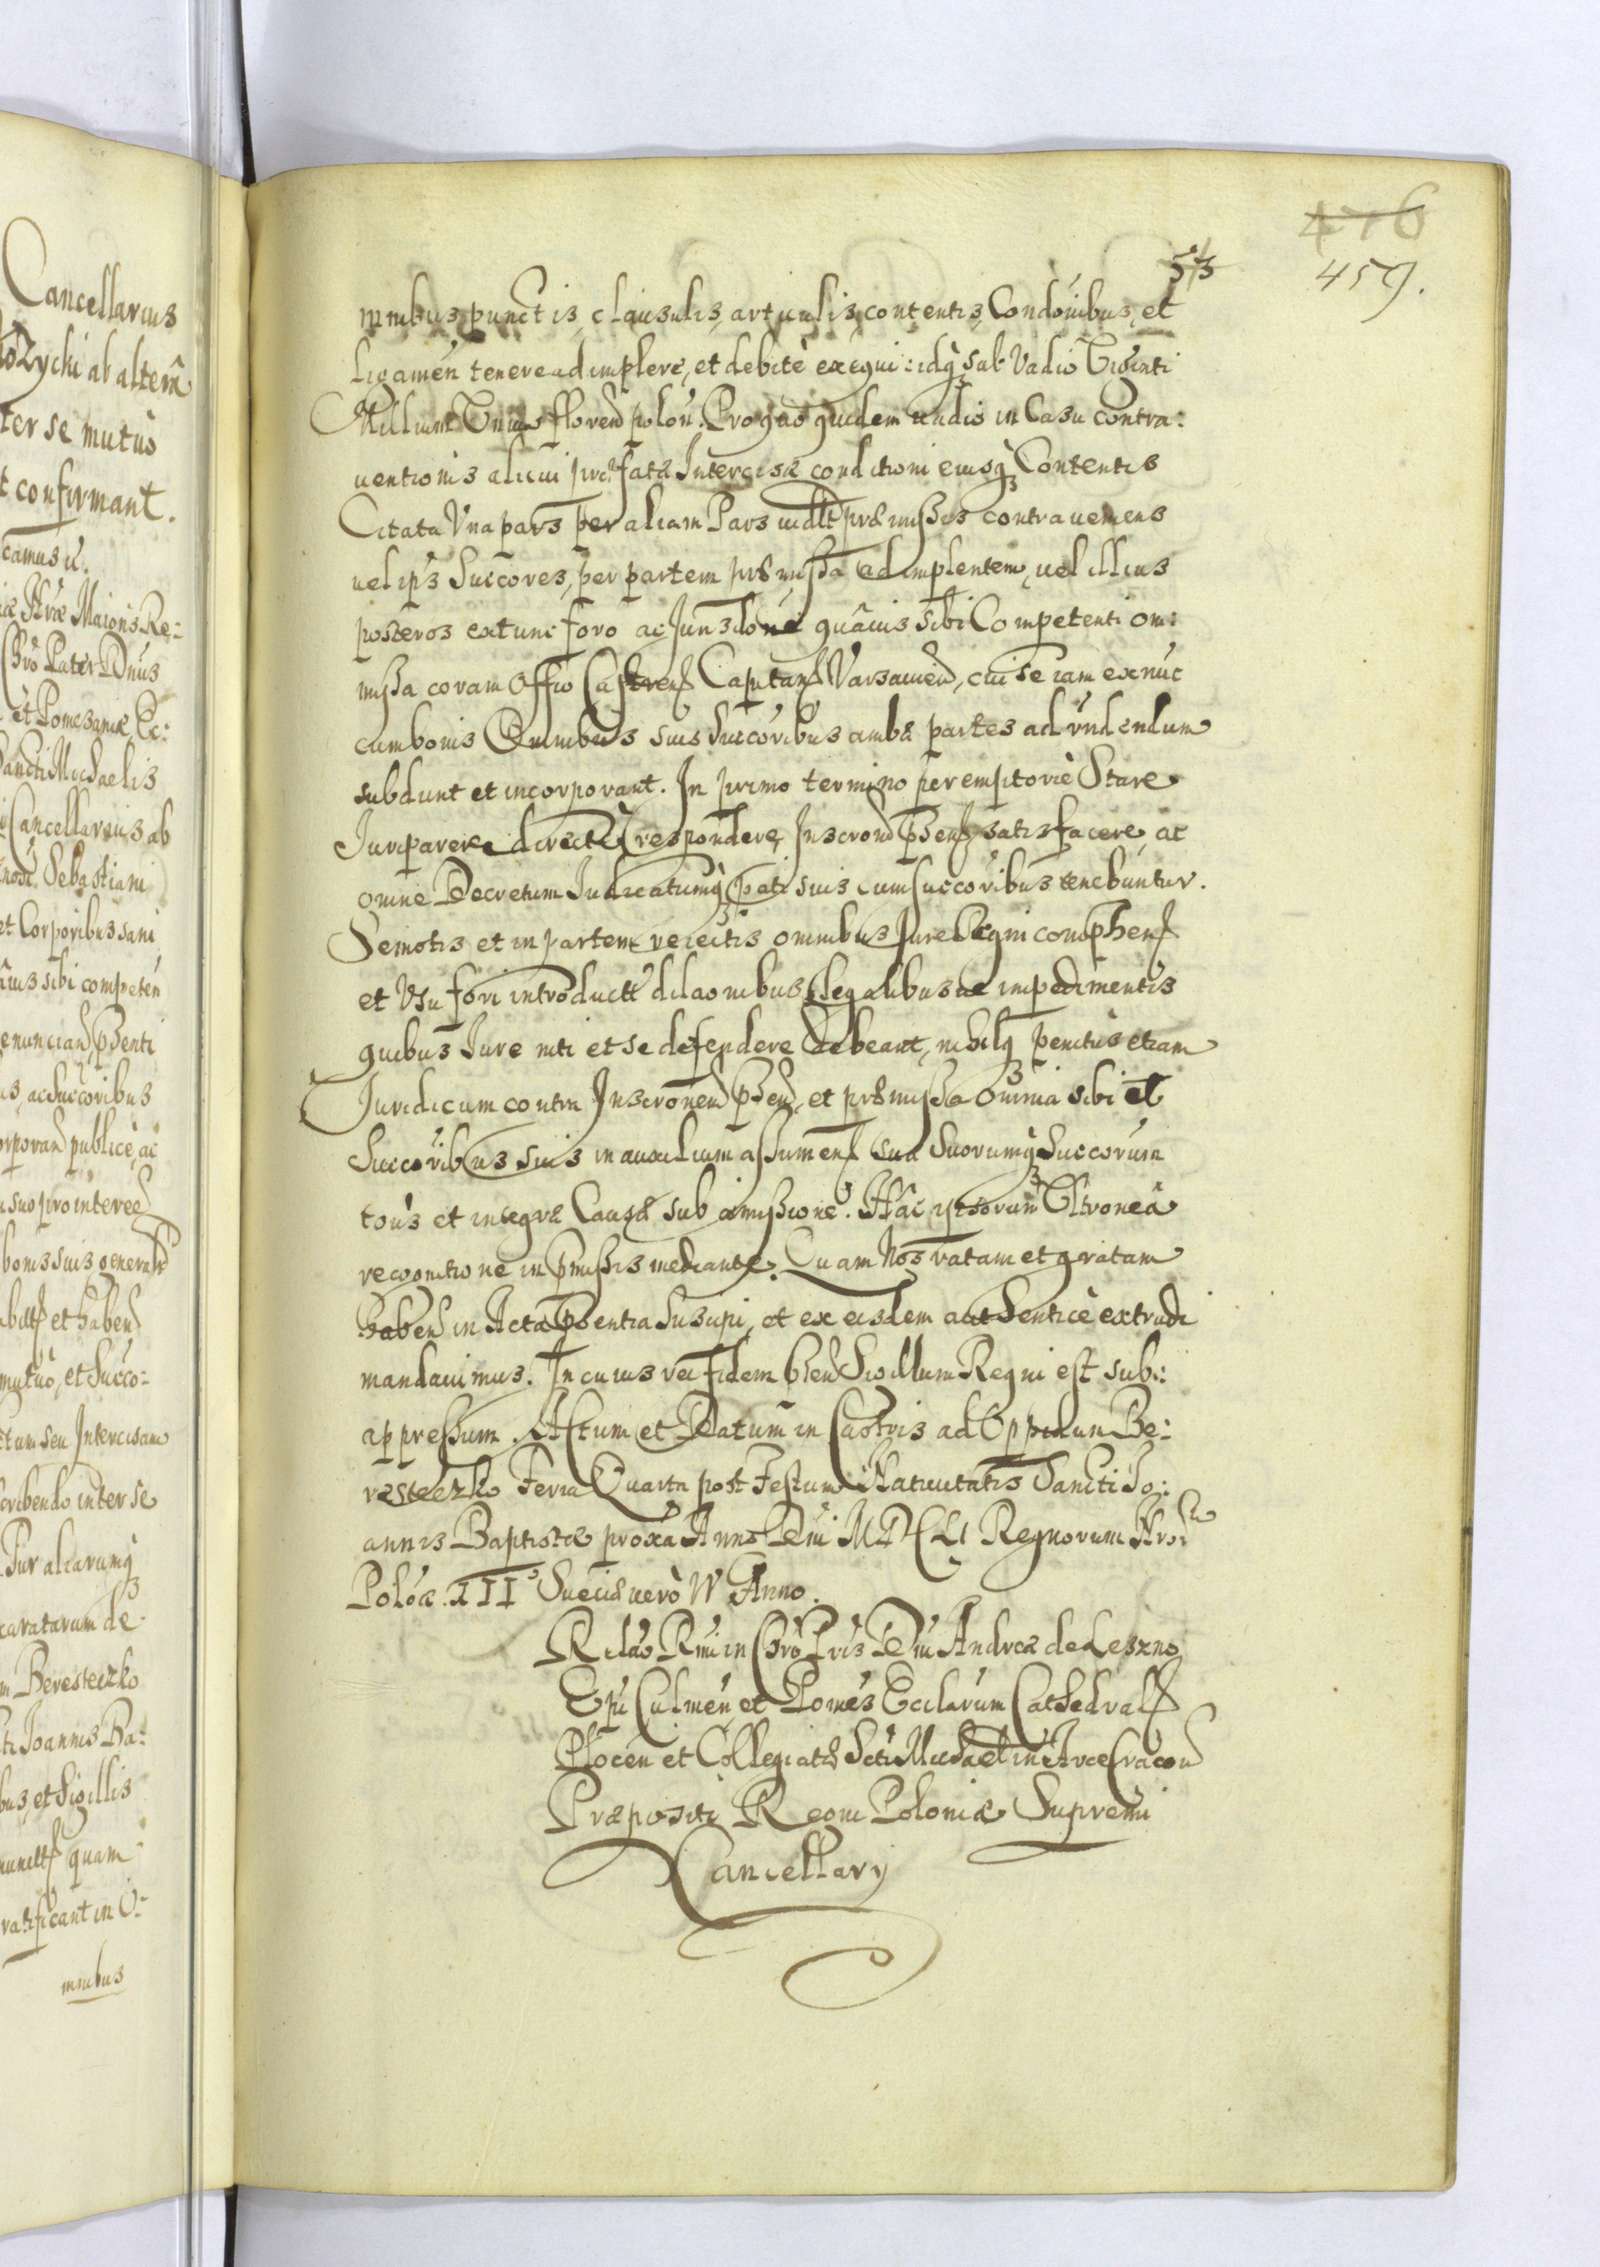 Cancellarius
ȯzycki ab alterâ
ter se mutuò
t confirmant.
camus u.
Maioris Re:
Chrô Pater Dnûs
et Pomesaniæ Ec:
Sancti Michaelis
Cancellarius ab
Sebastiani
et Corporibus sani
âuis sibi competeń
enunciań pñsenti
is, ac Succoribus
orporań publicè, ac
suo pro interee
bonis suis general
et haben
mutuò, et Succo:
tum seu Intercisam
scribendo inter se
Pur aliarumq̀
aratarum de
m Beresteczko
ti Joannis Ba:
bus, et Sigillis
quam
ratificant in O:
mnibus
476
459.
513
mnibus, punctis, clausulis, articulis, contentis, Condõnibus, et
Ligamen̄ tenere adimplere, et debitè exequi: idq̀ sub Vadio Viginti
Millium florenō polon̄. Pro quo quidem uadio in Casu contra:
uentionis alicui præfatæ Intercisæ conditioni eiusq̀ Contentis
Citata Vna pars per aliam Pars uidlt præmissis contraueniens
uel ip̄s Succores, per partem præmissa adimplentem, uel illius
posteros extunc foro ac Jurisdõne quâuis sibi Competenti om:
missa coram Offio Castren Capitan Varsauien, cui se iam exnuc
cum bonis Omnibus suis Succoribus ambæ partes ad r̄ndendum
subdunt et incorporant. In primo termino peremptoriè Stare
Juri parere directè respondere, Inscrõni pn̄sen satisfacere, ac
omne Decretum Judicatumq̀ pati suis cum succoribus tenebuntur.
Semotis et in partem reiectis omnibus Jure Regni comphens
et Vsu fori introductis dilaõnibus legalibus ac impedimentis
quibus Jure niti et se defendere debeant, nihilq̀ penitùs etiam
Juridicum contra Inscrõnem pn̄sen, et præmissa Omnia sibi et
Succoribus suis in auxilium assumen sua Suorumq̀ Succorum
tot̄s et integræ Causæ sub amissione. Hâc ipsorum Vltroneâ
recognitione in pmissis mediante. Quam Nos ratam et gratam
haben in Acta pn̄sentia Suscipi, et ex eisdem authenticè extradi
mandauimus. In cuius rei fidem pn̄sen Sigillum Regni est sub:
appressum. Actum et Datum in Castris ad Oppidum Be:
resteczko Feria Quarta post Festum Natiuitatis Sancti Jo:
annis Baptistæ proxa Anno Dnī MDCLI Regnorum Nrôr
Polõæ. III Sueciæ uerò IV Anno.
Relaõ Rmī in Chrō Pris Dnī Andreæ de Leszno
Epī Culmen̄ et Pomes Ecclarum Cathedral
Plocen̄ et Collegiatæ Scti Michael in Arce Cracou
Præpositi Regni Poloniæ Supremi
Cancellarij